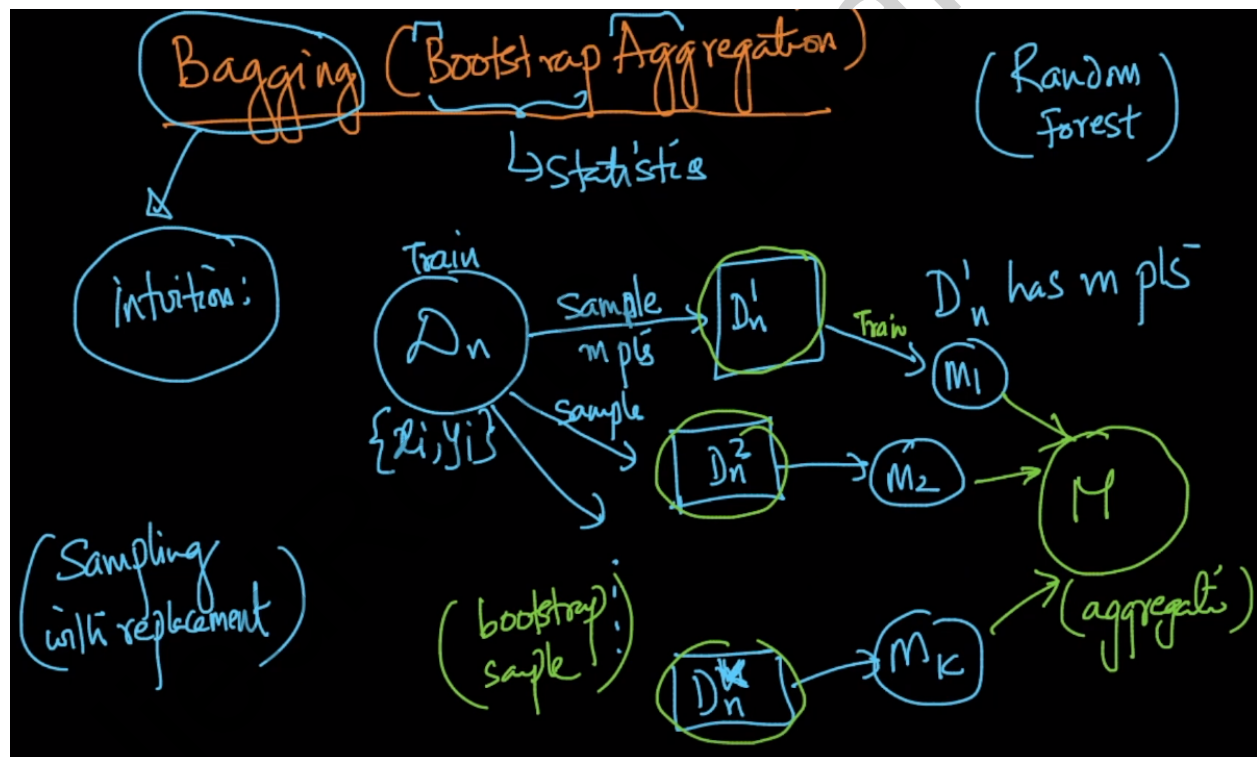 Bagging (Bootstrap Aggregation)
↳ Statistics
(Random
Forest)
intuition:
Train
Dn
{xi, yi}
sample
m pts
Dn^1
Train
Dn^1 has m pts
m1
sample
Dn^2
M2
M
(aggregati)
(Sampling
with replacement)
(bootstrap
sample)
Dn^k
MK